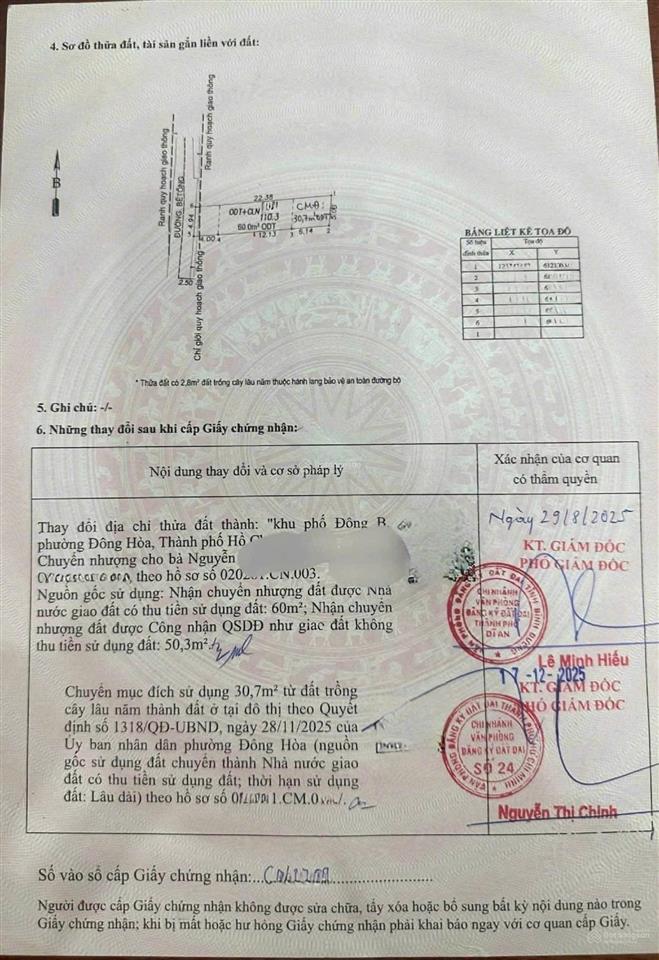 4. Sơ đồ thửa đất, tài sản gắn liền với đất:
B
Ranh quy hoạch giao thông
ĐƯỜNG BÊTÔNG
Ranh quy hoạch giao thông
Chỉ giới quy hoạch giao thông
22.38
ODT+CLN
110.3
60.0m² ODT
CMĐ:
30,7m² ODT
4.94
4.00
12.13
6.14
2.50
* Thửa đất có 2,8m² đất trồng cây lâu năm thuộc hành lang bảo vệ an toàn đường bộ
BẢNG LIỆT KÊ TOẠ ĐỘ
Số hiệu đỉnh thửa
Toạ độ
X Y
1
2
3
4
5
6
1
5. Ghi chú: -/-
6. Những thay đổi sau khi cấp Giấy chứng nhận:
Nội dung thay đổi và cơ sở pháp lý
Xác nhận của cơ quan
có thẩm quyền
Thay đổi địa chỉ thửa đất thành: "khu phố Đông
phường Đông Hòa, Thành phố Hồ
Chuyển nhượng cho bà Nguyễn
theo hồ sơ số
Nguồn gốc sử dụng: Nhận chuyển nhượng đất được Nhà
nước giao đất có thu tiền sử dụng đất: 60m²; Nhận chuyển
nhượng đất được Công nhận QSDĐ như giao đất không
thu tiền sử dụng đất: 50,3m².
Ngày 29/8/2025
KT. GIÁM ĐỐC
PHÓ GIÁM ĐỐC
VĂN PHÒNG ĐĂNG KÝ ĐẤT ĐAI TỈNH BÌNH DƯƠNG
CHI NHÁNH
VĂN PHÒNG
ĐĂNG KÝ ĐẤT ĐAI
THÀNH PHỐ
DĨ AN
Lê Minh Hiếu
Chuyển mục đích sử dụng 30,7m² từ đất trồng
cây lâu năm thành đất ở tại đô thị theo Quyết
định số 1318/QĐ-UBND, ngày 28/11/2025 của
Ủy ban nhân dân phường Đông Hòa (nguồn
gốc sử dụng đất chuyển thành Nhà nước giao
đất có thu tiền sử dụng đất; thời hạn sử dụng
đất: Lâu dài) theo hồ sơ số
17-12-2025
KT. GIÁM ĐỐC
PHÓ GIÁM ĐỐC
VĂN PHÒNG ĐĂNG KÝ ĐẤT ĐAI THÀNH PHỐ HỒ CHÍ MINH
CHI NHÁNH
VĂN PHÒNG
ĐĂNG KÝ ĐẤT ĐAI
SỐ 24
Nguyễn Thị Chinh
Số vào sổ cấp Giấy chứng nhận:
Người được cấp Giấy chứng nhận không được sửa chữa, tẩy xóa hoặc bổ sung bất kỳ nội dung nào trong
Giấy chứng nhận; khi bị mất hoặc hư hỏng Giấy chứng nhận phải khai báo ngay với cơ quan cấp Giấy.